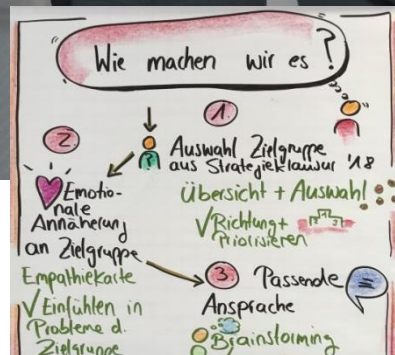 Wie machen wir es?
1.
Auswahl Zielgruppe
aus Strategieklausur '18
Übersicht + Auswahl
Richtung +
Priorisieren
2.
Emotio-
nale
Annäherung
an Zielgruppe
Empathiekarte
Einfühlen in
Probleme d.
Zielgruppe
3.
Passende
Ansprache
Brainstorming